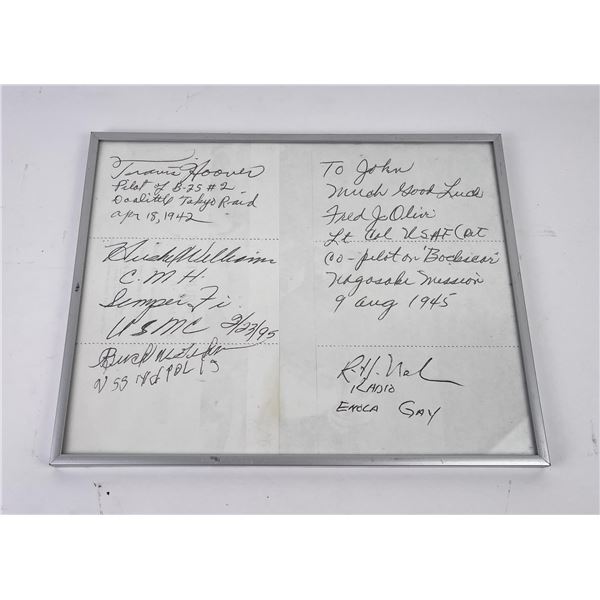 Travis Hoover
Pilot of B-25 #2
Doolittle Tokyo Raid
Apr 18, 1942
Williams
C.M.H.
Semper Fi
USMC 2/23/95
To John
Much Good Luck
Fred J. Olivi
Lt Col USAF
Co-pilot on 'Bockscar'
Nagasaki Mission
9 Aug 1945
R.H. Nel
RADIO
ENOLA GAY